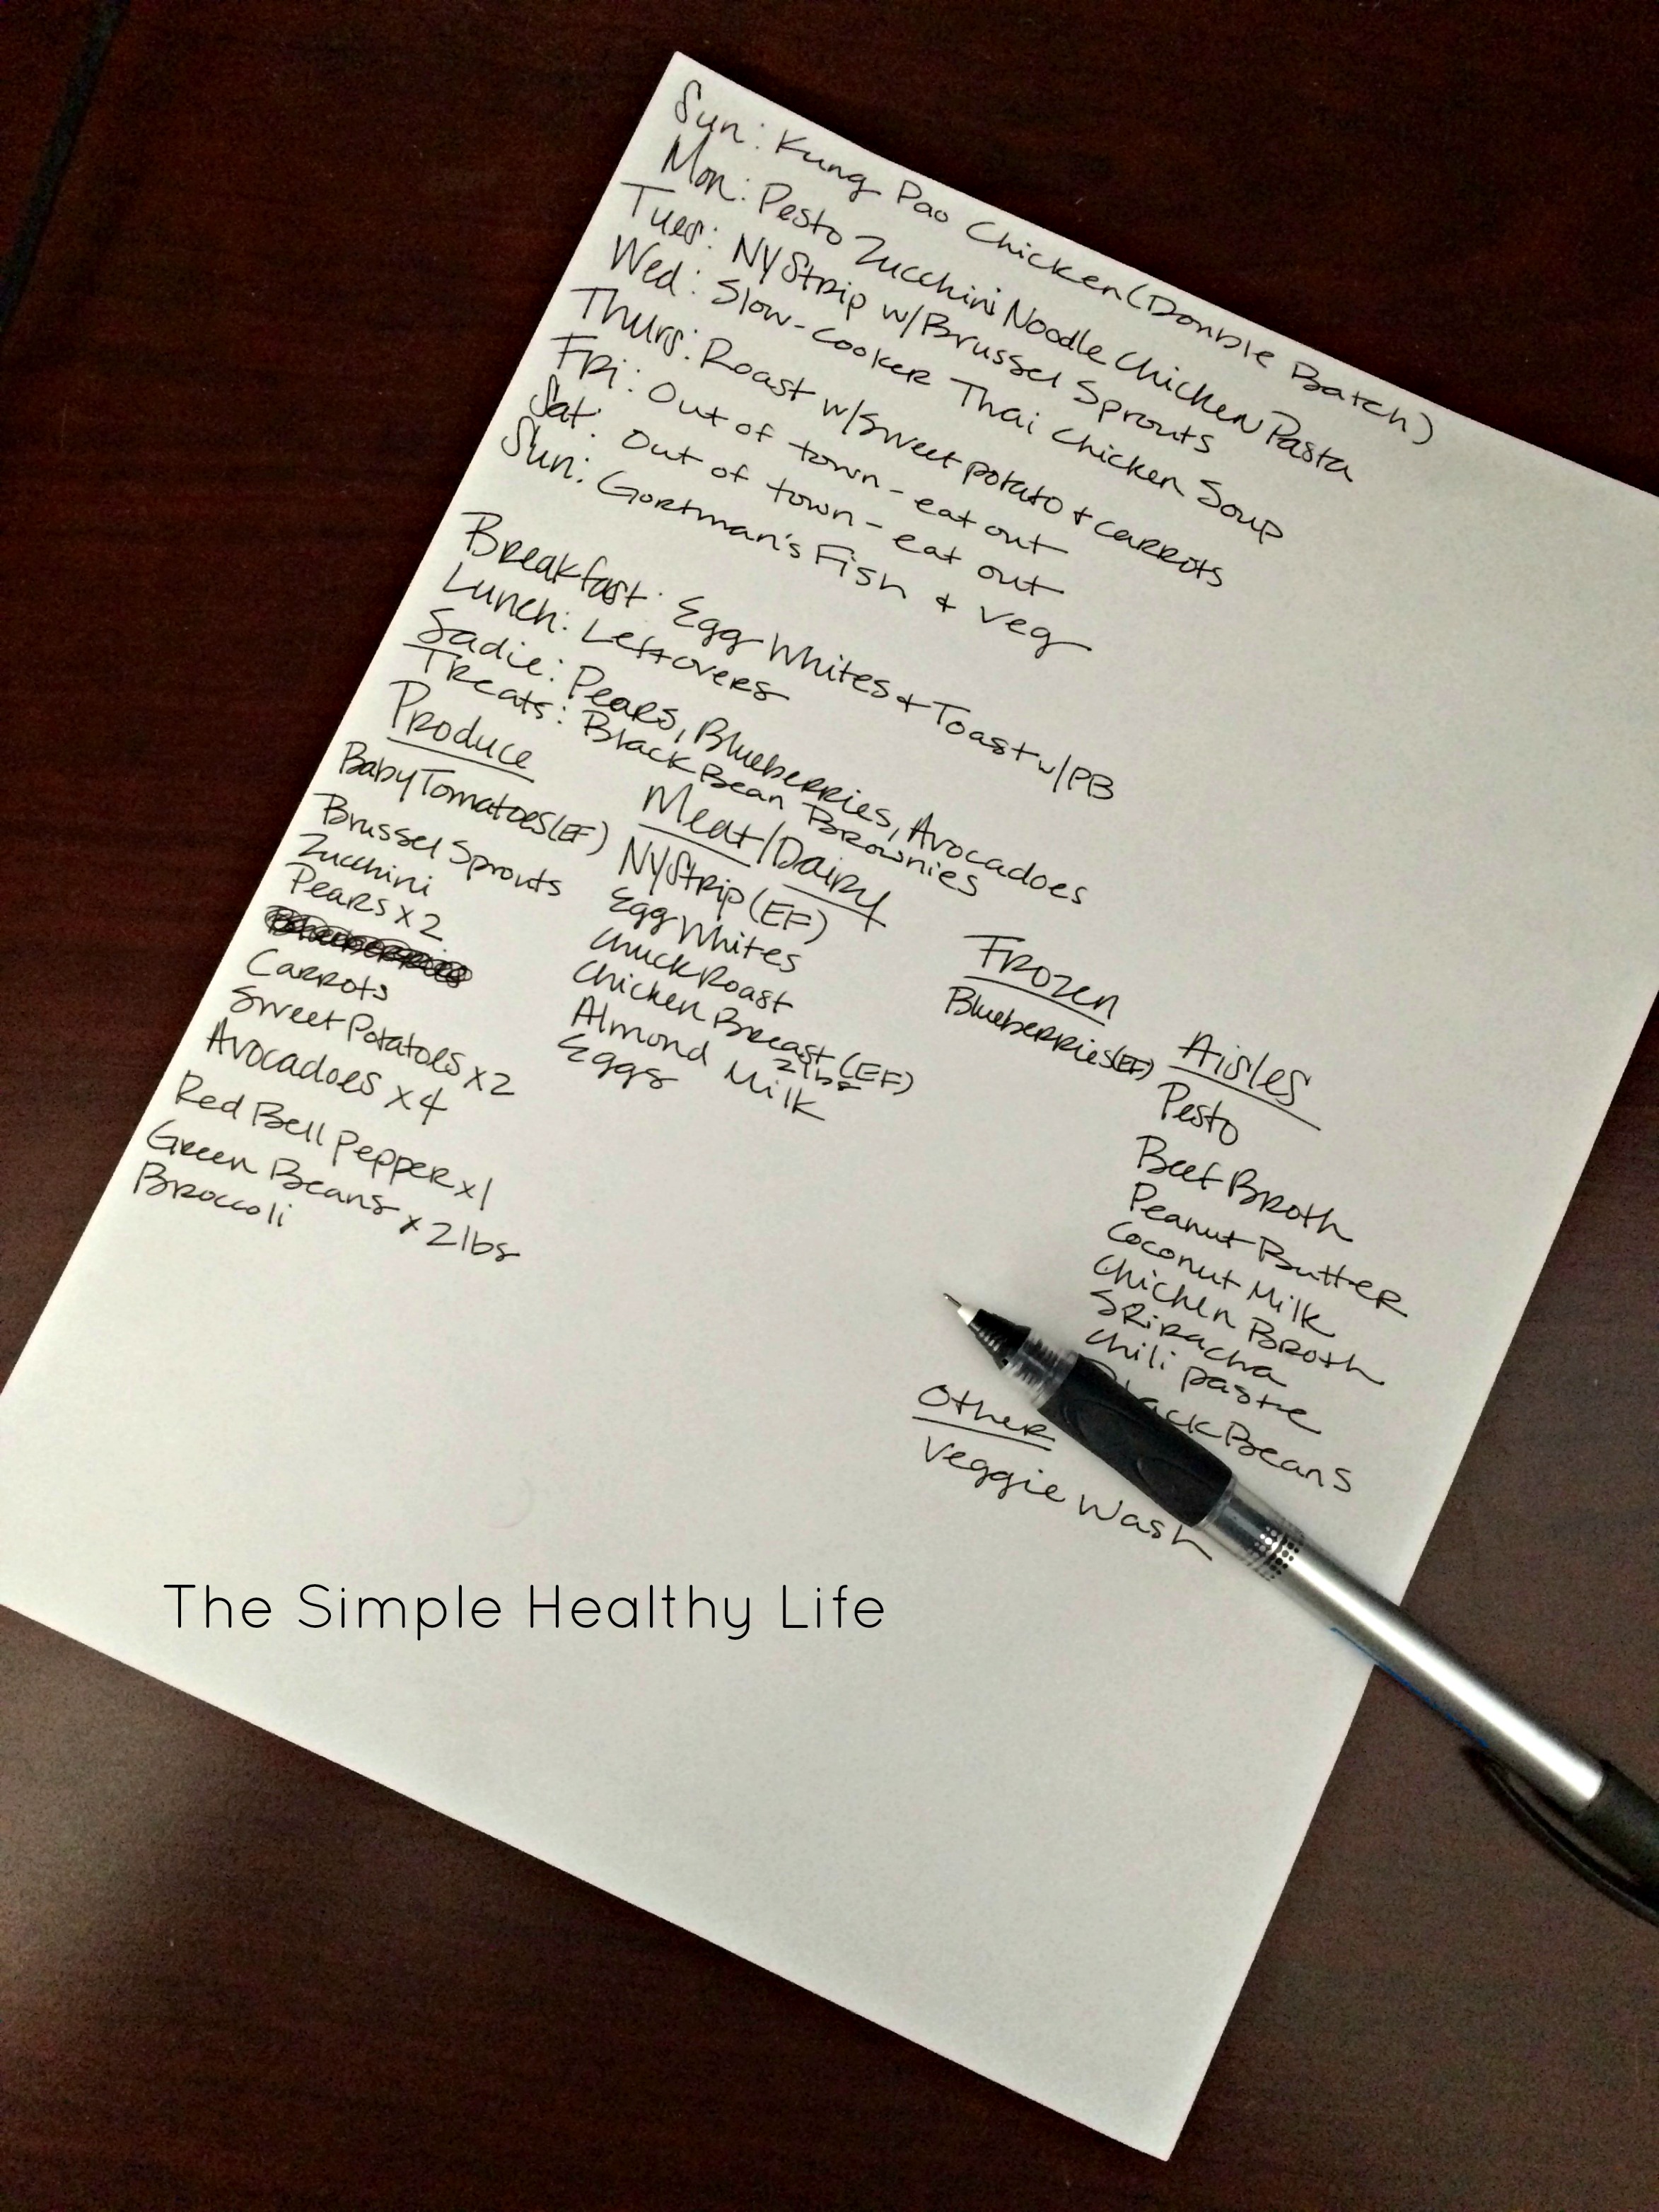 Sun: Kung Pao Chicken (Double Batch)
Mon: Pesto Zucchini Noodle Chicken Pasta
Tues: NY Strip w/Brussel Sprouts
Wed: Slow-Cooker Thai Chicken Soup
Thurs: Roast w/sweet potato + carrots
Fri: Out of town - eat out
Sat: Out of town - eat out
Sun: Gortman's Fish + veg
Breakfast: Egg Whites + Toast w/PB
Lunch: Leftovers
Sadie: Pears, Blueberries, Avocadoes
Treats: Black Bean Brownies
Produce
Baby Tomatoes (EF)
Brussel Sprouts
Zucchini
Pears x 2
Carrots
Sweet Potatoes x 2
Avocadoes x 4
Red Bell Pepper x 1
Green Beans x 2 lbs
Broccoli
Meat/Dairy
NY Strip (EF)
Egg Whites
Chuck Roast
Chicken Breast (EF)
2 lbs
Almond Milk
Eggs
Frozen
Blueberries (EF)
Aisles
Pesto
Beef Broth
Peanut Butter
Coconut Milk
Chicken Broth
Sriracha
Chili paste
Black Beans
Other
Veggie Wash
The Simple Healthy Life